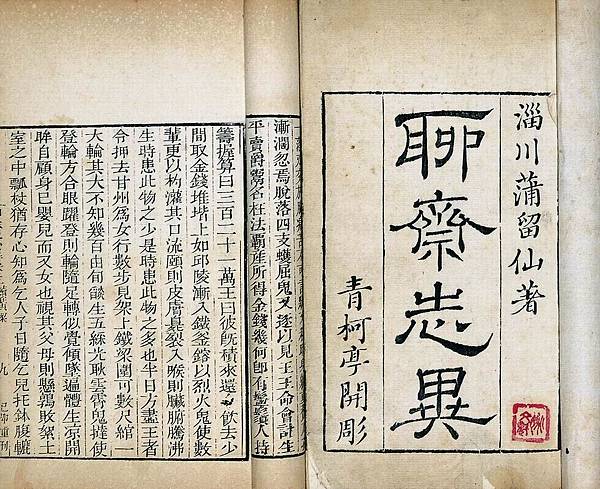 淄川蒲留仙著
聊齋志異
青柯亭開彫
漸濶忽焉脫落四支蠖屈鬼叉逐以見王王命會計生
平賣爵鬻名枉法霸產所得金錢幾何即有鬡鬚人持
籌握算曰三百二十一萬王曰彼既積來還飲去少
間取金錢堆堦上如邱陵漸入鐵釜鎔以烈火鬼使數
輩更以杓灌其口流頤則皮膚臭裂入喉則臟腑騰沸
生時患此物之少是時患此物之多也半日方盡王者
令押去甘州爲女行數步見架上鐵梁圍可數尺綰一
火輪其大不知幾百由旬燄生五綵光耿雲霄鬼撻使
登輪方合眼躍登則輪隨足轉似覺傾墜遍體生涼開
眸自顧身已嬰兒而又女也視其父母則懸鶉敗絮土
室之中瓢杖猶存心知爲乞人子日隨乞兒托鉢腹轆